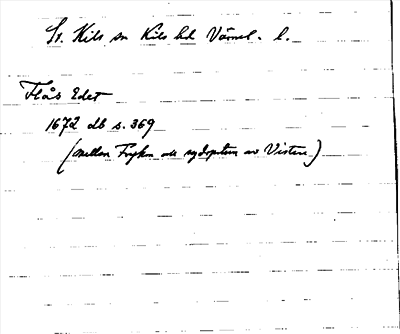 St. Kils sn Kils hd Värml. l.
Flås Edet
1672 db s. 369
(mellan Fryken och sydspetsen av Visten)